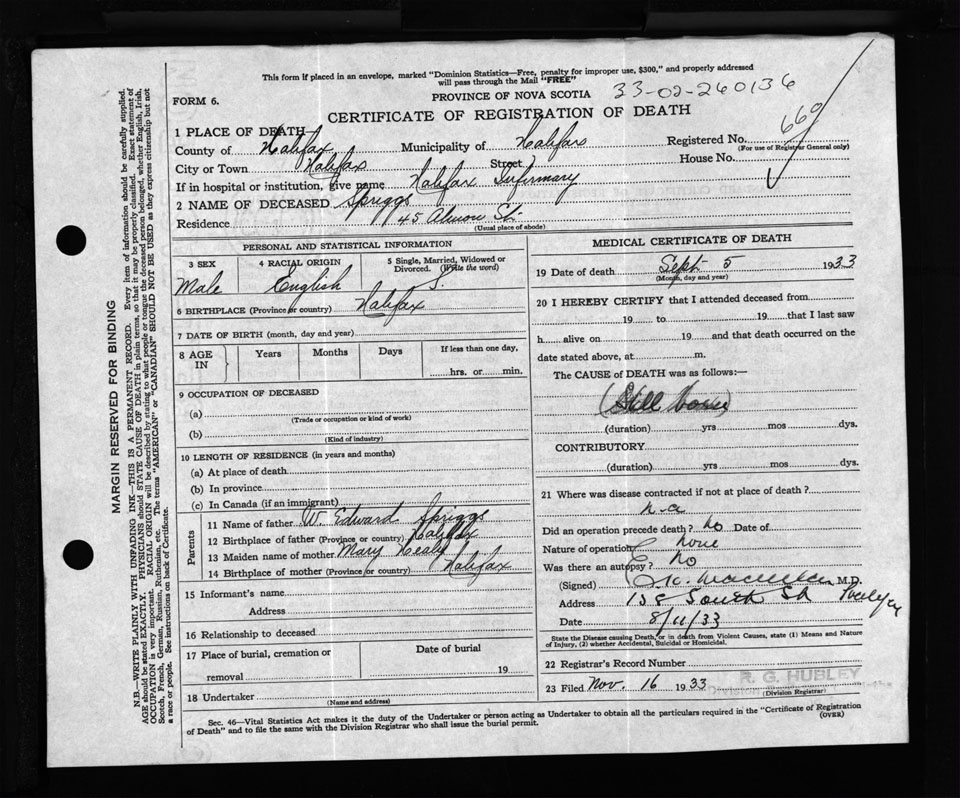 This form if placed in an envelope, marked "Dominion Statistics—Free, penalty for improper use, $300," and properly addressed
will pass through the Mail "FREE"
PROVINCE OF NOVA SCOTIA
33-02-260136
FORM 6.
CERTIFICATE OF REGISTRATION OF DEATH
660
1 PLACE OF DEATH
County of Halifax Municipality of Halifax Registered No.
(For use of Registrar General only)
City or Town Halifax Street House No.
If in hospital or institution, give name Halifax Infirmary
2 NAME OF DECEASED Spriggs
Residence 45 Almon St.
(Usual place of abode)
PERSONAL AND STATISTICAL INFORMATION
3 SEX 4 RACIAL ORIGIN 5 Single, Married, Widowed or Divorced. (Write the word)
Male English S.
6 BIRTHPLACE (Province or country) Halifax
7 DATE OF BIRTH (month, day and year)
8 AGE IN Years Months Days If less than one day,
hrs. or min.
9 OCCUPATION OF DECEASED
(a)
(Trade or occupation or kind of work)
(b)
(Kind of industry)
10 LENGTH OF RESIDENCE (in years and months)
(a) At place of death
(b) In province
(c) In Canada (if an immigrant)
Parents
11 Name of father W. Edward Spriggs
12 Birthplace of father (Province or country) Halifax
13 Maiden name of mother Mary Healy
14 Birthplace of mother (Province or country) Halifax
15 Informant's name
Address
16 Relationship to deceased
17 Place of burial, cremation or removal Date of burial
19
18 Undertaker
(Name and address)
MEDICAL CERTIFICATE OF DEATH
19 Date of death Sept 5 1933
(Month, day and year)
20 I HEREBY CERTIFY that I attended deceased from
19 to 19 that I last saw
h alive on 19 and that death occurred on the
date stated above, at m.
The CAUSE of DEATH was as follows:—
(Still born)
(duration) yrs mos dys.
CONTRIBUTORY
(duration) yrs mos dys.
21 Where was disease contracted if not at place of death?
n.a
Did an operation precede death? No Date of
Nature of operation none
Was there an autopsy? No
(Signed) M.D.
Address 158 South St
Date 8/11/33
State the Disease causing Death, or in death from Violent Causes, state (1) Means and Nature
of Injury, (2) whether Accidental, Suicidal or Homicidal.
22 Registrar's Record Number
R. G. HUBLEY
23 Filed Nov. 16 1933
(Division Registrar)
Sec. 46—Vital Statistics Act makes it the duty of the Undertaker or person acting as Undertaker to obtain all the particulars required in the "Certificate of Registration
of Death" and to file the same with the Division Registrar who shall issue the burial permit. (OVER)
MARGIN RESERVED FOR BINDING
N.B.—WRITE PLAINLY WITH UNFADING INK—THIS IS A PERMANENT RECORD. Every item of information should be carefully supplied.
AGE should be stated EXACTLY. PHYSICIANS should STATE CAUSE OF DEATH in plain terms, so that it may be properly classified. Exact statement of
OCCUPATION is very important. RACIAL ORIGIN will be described by stating to what people or tongue the deceased person belonged, whether English, Irish,
Scotch, French, German, Russian, Ruthenian, etc. The terms "AMERICAN" or "CANADIAN" SHOULD NOT BE USED as they express citizenship but not
a race or people. See instructions on back of Certificate.